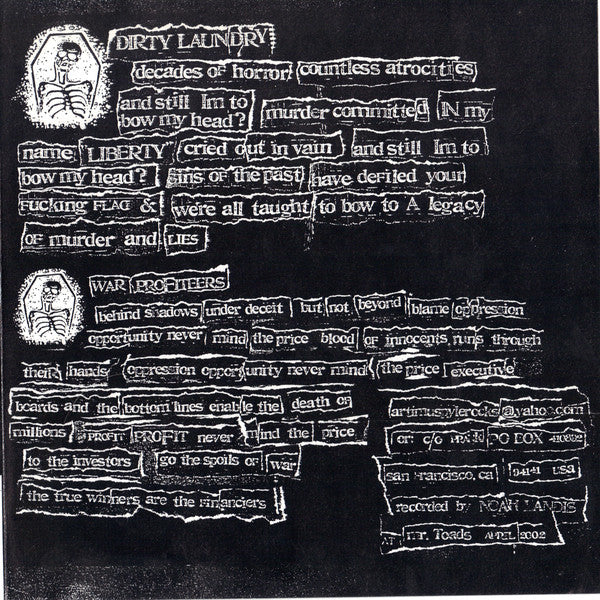 DIRTY LAUNDRY
decades OF horror! countless atrocities
and still Im to
bow my head? murder committed IN my
name "LIBERTY" cried out in vain and still Im to
bow my head? sins OF the past have defiled your
FUCKING FLAG & we're all taught to bow to A legacy
OF murder and LIES
WAR PROFITEERS
behind shadows under deceit but not beyond blame oppression
opportunity never mind the price blood OF innocents runs through
their hands oppression opportunity never mind the price executive
boards and the bottom lines enable the death OF
millions PROFIT PROFIT never mind the price
to the investors go the spoils OF war
the true winners are the financiers
artimuspylerocks@yahoo.com
or: c/o PO BOX
San Francisco, ca 94141 USA
recorded by NOAH LANDIS
AT mr. Toads APRIL 2002